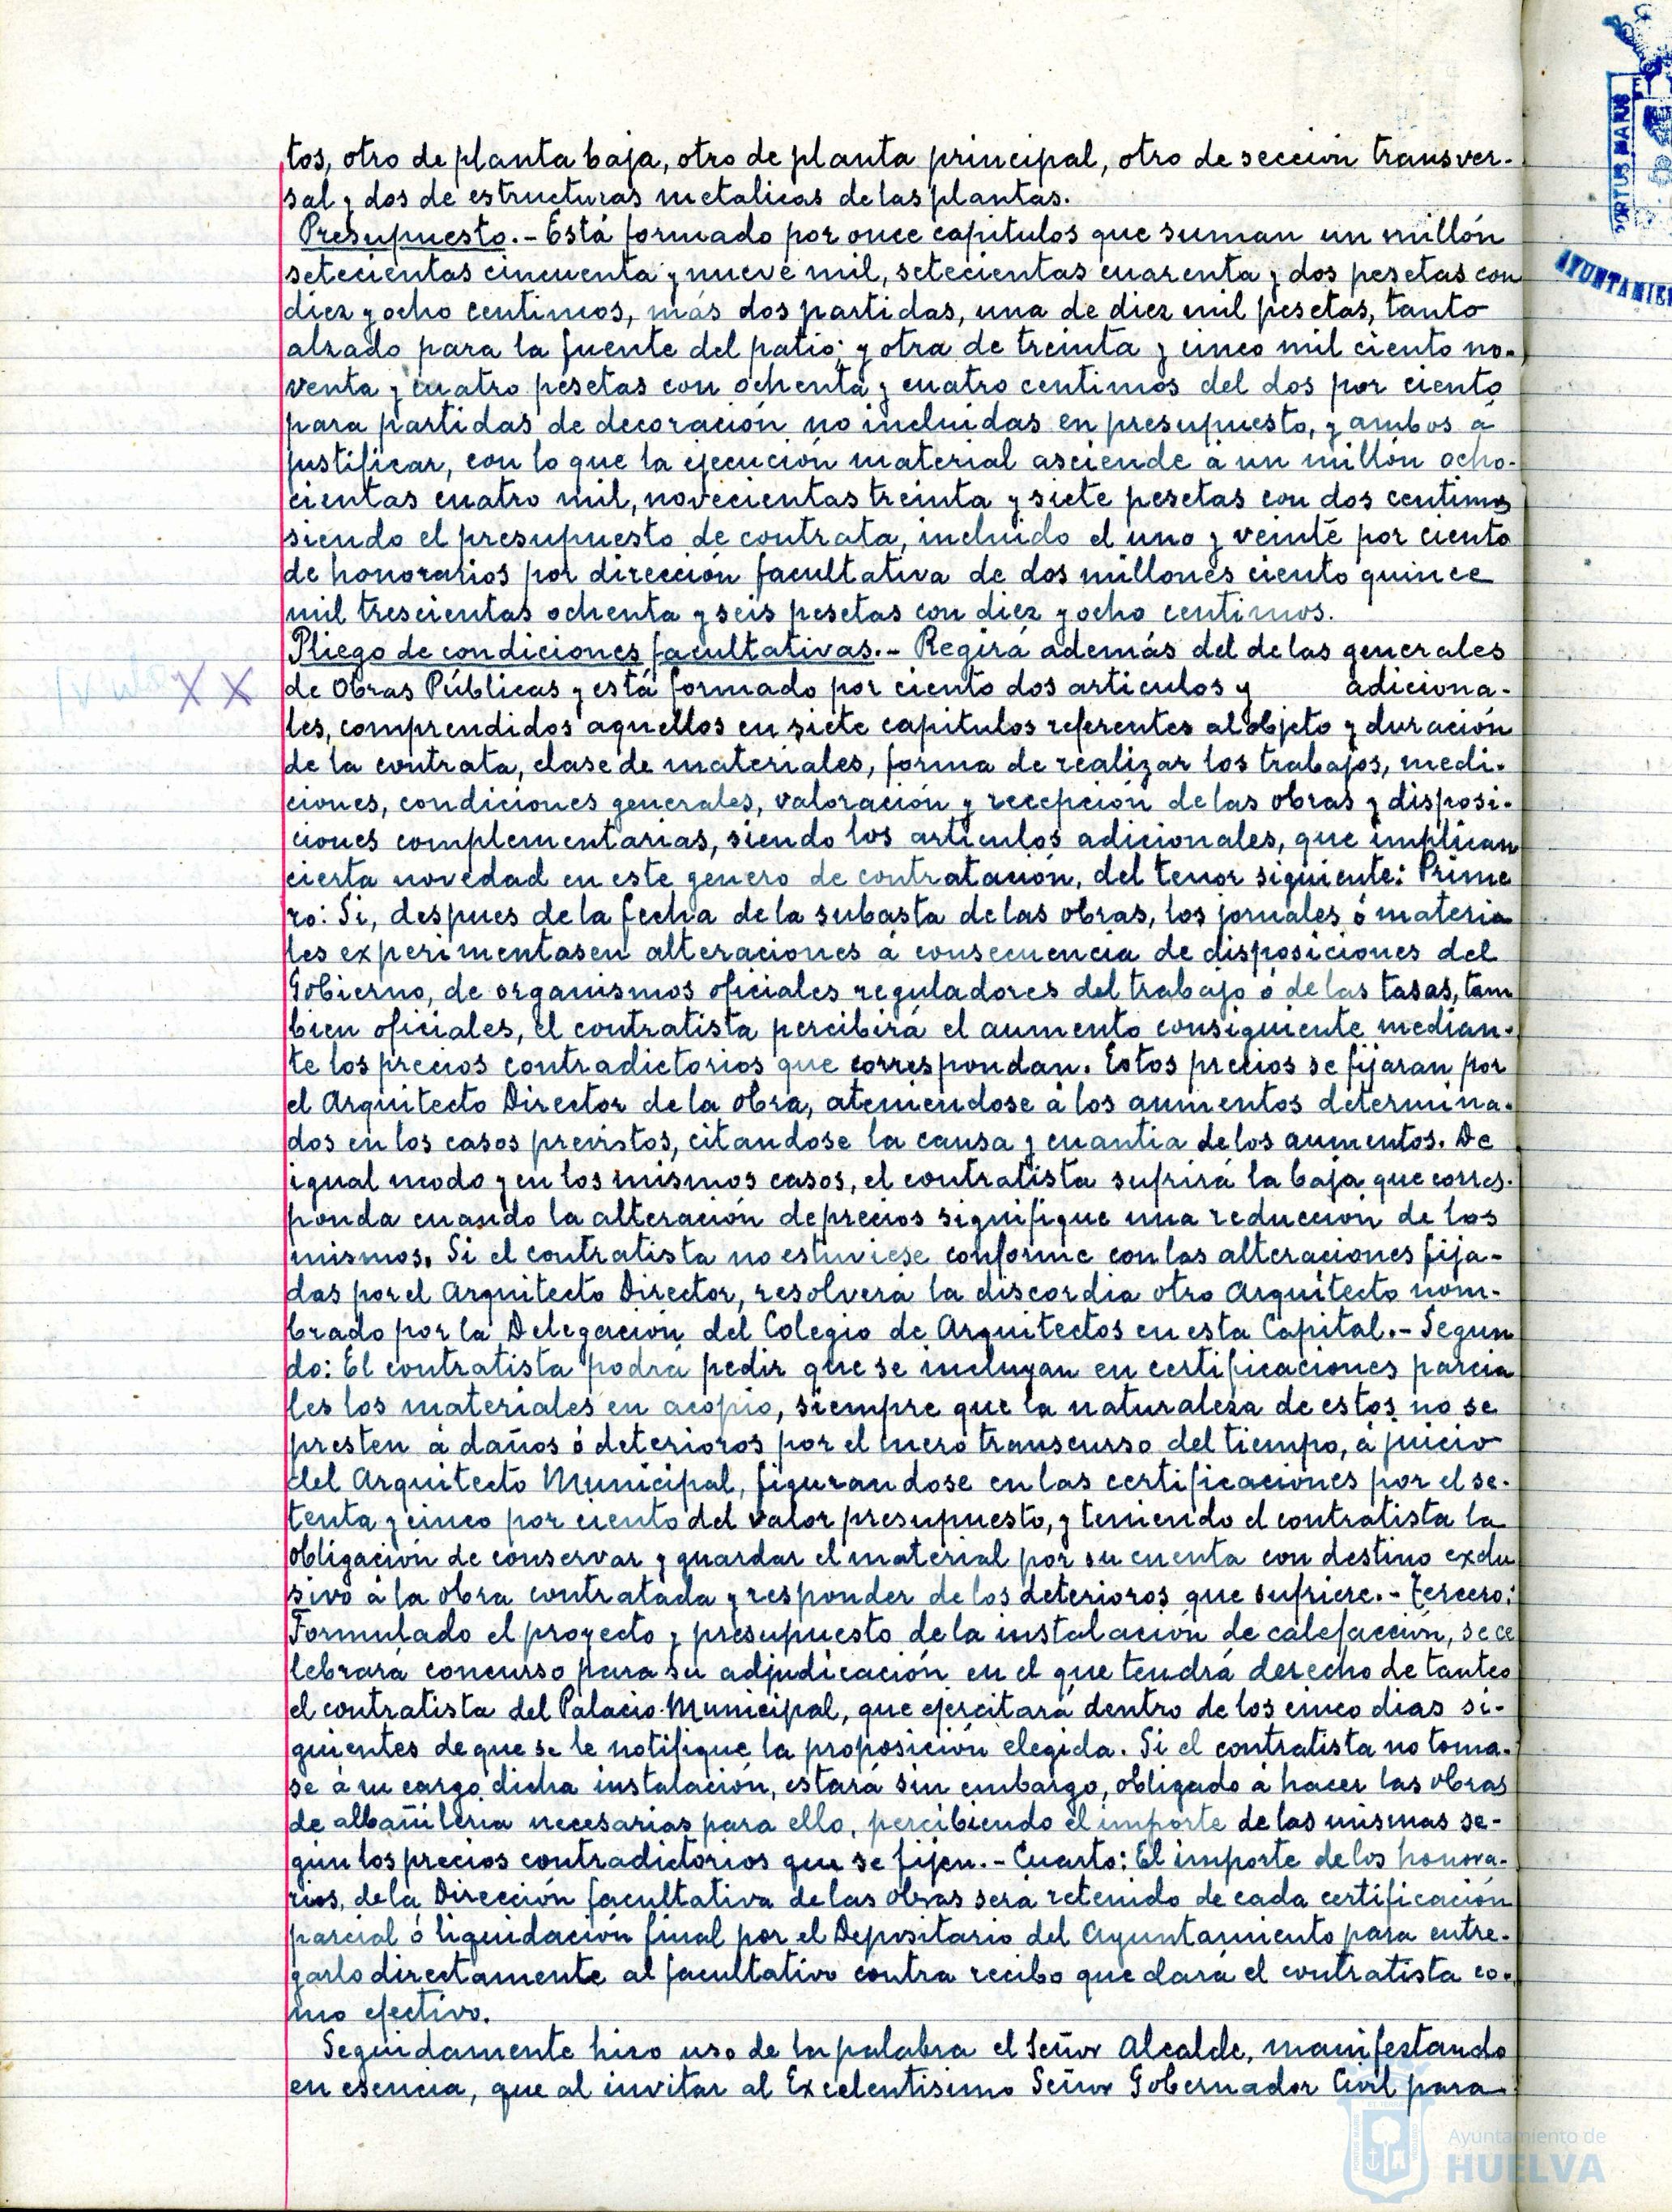 tos, otro de planta baja, otro de planta principal, otro de sección transver-
sal y dos de estructuras metalicas de las plantas.
Presupuesto.- Está formado por once capitulos que suman un millón
setecientas cincuenta y nueve mil, setecientas cuarenta y dos pesetas con
diez y ocho centimos, más dos partidas, una de diez mil pesetas, tanto
alzado para la fuente del patio; y otra de treinta y cinco mil ciento no-
venta y cuatro pesetas con ochenta y cuatro centimos del dos por ciento
para partidas de decoración no incluidas en presupuesto, y ambos á
justificar, con lo que la ejecución material asciende á un millón ocho-
cientas cuatro mil, novecientas treinta y siete pesetas con dos centimos
siendo el presupuesto de contrata, incluido el uno y veinte por ciento
de honorarios por dirección facultativa de dos millones ciento quince
mil trescientas ochenta y seis pesetas con diez y ocho centimos.
Pliego de condiciones facultativas.- Regirá además del de las generales
X X de Obras Públicas y está formado por ciento dos articulos y adiciona-
les, comprendidos aquellos en siete capitulos referentes al objeto y duración
de la contrata, clase de materiales, forma de realizar los trabajos, medi-
ciones, condiciones generales, valoración y recepción de las obras y disposi-
ciones complementarias, siendo los articulos adicionales, que implican
cierta novedad en este genero de contratación, del tenor siguiente: Prime
ro: Si, despues de la fecha de la subasta de las obras, los jornales ó materia
les experimentasen alteraciones á consecuencia de disposiciones del
Gobierno, de organismos oficiales reguladores del trabajo ó de las tasas, tam
bien oficiales, el contratista percibirá el aumento consiguiente median-
te los precios contradictorios que correspondan. Estos precios se fijaran por
el Arquitecto Director de la obra, ateniendose á los aumentos determina-
dos en los casos previstos, citandose la causa y cuantia de los aumentos. De
igual modo y en los mismos casos, el contratista sufrirá la baja que corres-
ponda cuando la alteración de precios signifique una reducción de los
mismos. Si el contratista no estuviese conforme con las alteraciones fija-
das por el Arquitecto Director, resolverá la discordia otro Arquitecto nom-
brado por la Delegación del Colegio de Arquitectos en esta Capital.- Segun
do: El contratista podrá pedir que se incluyan en certificaciones parcia
les los materiales en acopio, siempre que la naturaleza de estos no se
presten á daños ó deterioros por el mero transcurso del tiempo, á juicio
del Arquitecto Municipal, figurandose en las certificaciones por el se-
tenta y cinco por ciento del valor presupuesto, y teniendo el contratista la
obligación de conservar y guardar el material por su cuenta con destino exclu
sivo á la obra contratada y responder de los deterioros que sufriere.- Tercero:
Formulado el proyecto y presupuesto de la instalación de calefacción, se ce
lebrará concurso para su adjudicación en el que tendrá derecho de tanteo
el contratista del Palacio Municipal, que ejercitará dentro de los cinco dias si-
guientes de que se le notifique la proposición elegida. Si el contratista no toma-
se á su cargo dicha instalación, estará sin embargo, obligado á hacer las obras
de albañileria necesarias para ello, percibiendo el importe de las mismas se-
gún los precios contradictorios que se fijen.- Cuarto: El importe de los honora-
rios, de la Dirección facultativa de las obras será retenido de cada certificación
parcial ó liquidación final por el Depositario del Ayuntamiento para entre-
garlo directamente al facultativo contra recibo que dará el contratista co-
mo efectivo.
Seguidamente hizo uso de la palabra el Señor Alcalde, manifestando
en esencia, que al invitar al Excelentisimo Señor Gobernador Civil para
PORTUS MARIS
AYUNTAMIE
Ayuntamiento de
HUELVA